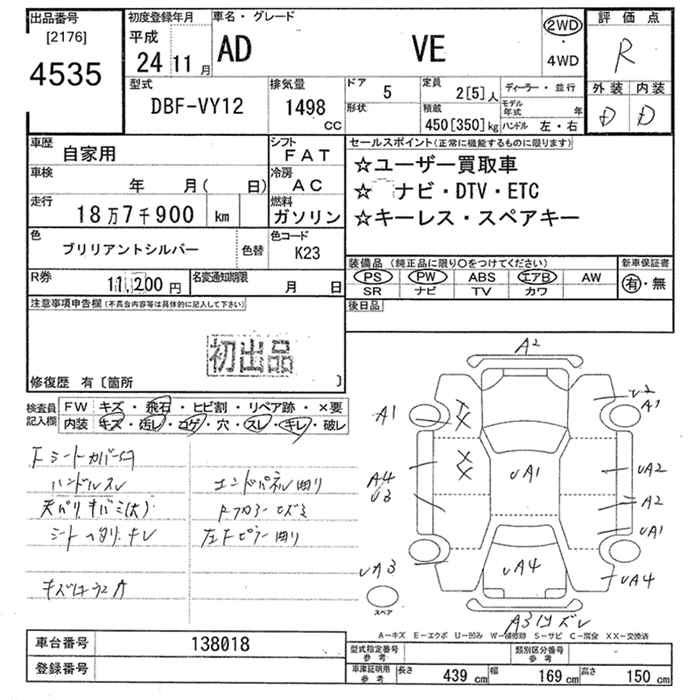 出品番号 初度登録年月 車名・グレード 評価点
[2176] 平成 2WD
4535 24 11月 AD VE ・ R
4WD
型式 排気量 ドア 5 定員 2[5]人 ディーラー・並行 外装 内装
DBF-VY12 1498 cc 形状 積載 450[350]kg モデル年式 年 D D
ハンドル 左・右
車歴 自家用 シフト FAT セールスポイント(正常に機能するものに限ります)
車検 年 月( 日) 冷房 AC ☆ユーザー買取車
走行 18万7千900 km 燃料 ガソリン ☆ ナビ・DTV・ETC
☆キーレス・スペアキー
色 ブリリアントシルバー 色替 色コード K23
装備品 (純正品に限り○をつけてください) 新車保証書
R券 11,200円 名変通知期限 月 日 PS PW ABS エアB AW 有・無
SR ナビ TV カワ
注意事項申告欄(不具合内容等は具体的に記入して下さい) 後日品
初出品
修復歴 有〔箇所 〕
検査員記入欄 FW キズ・飛石・ヒビ割・リペア跡・×要
内装 キズ・汚レ・コゲ・穴・スレ・キレ・破レ
Fシートカバー付
ハンドルスレ エンドパネル曲り
天バリキバミ(大)
シートヘタリ・キレ 左Fピラー曲り
A2
A1 A1
A4 UA1 UA2
A2
UA1
UA3 UA4 UA4
スペア A3
A-キズ E-エクボ U-凹み W-補修跡 S-サビ C-腐食 XX-交換済
車台番号 138018 型式指定番号 参考 類別区分番号 参考
登録番号 車庫証明用 参考 長さ 439cm 幅 169cm 高さ 150cm